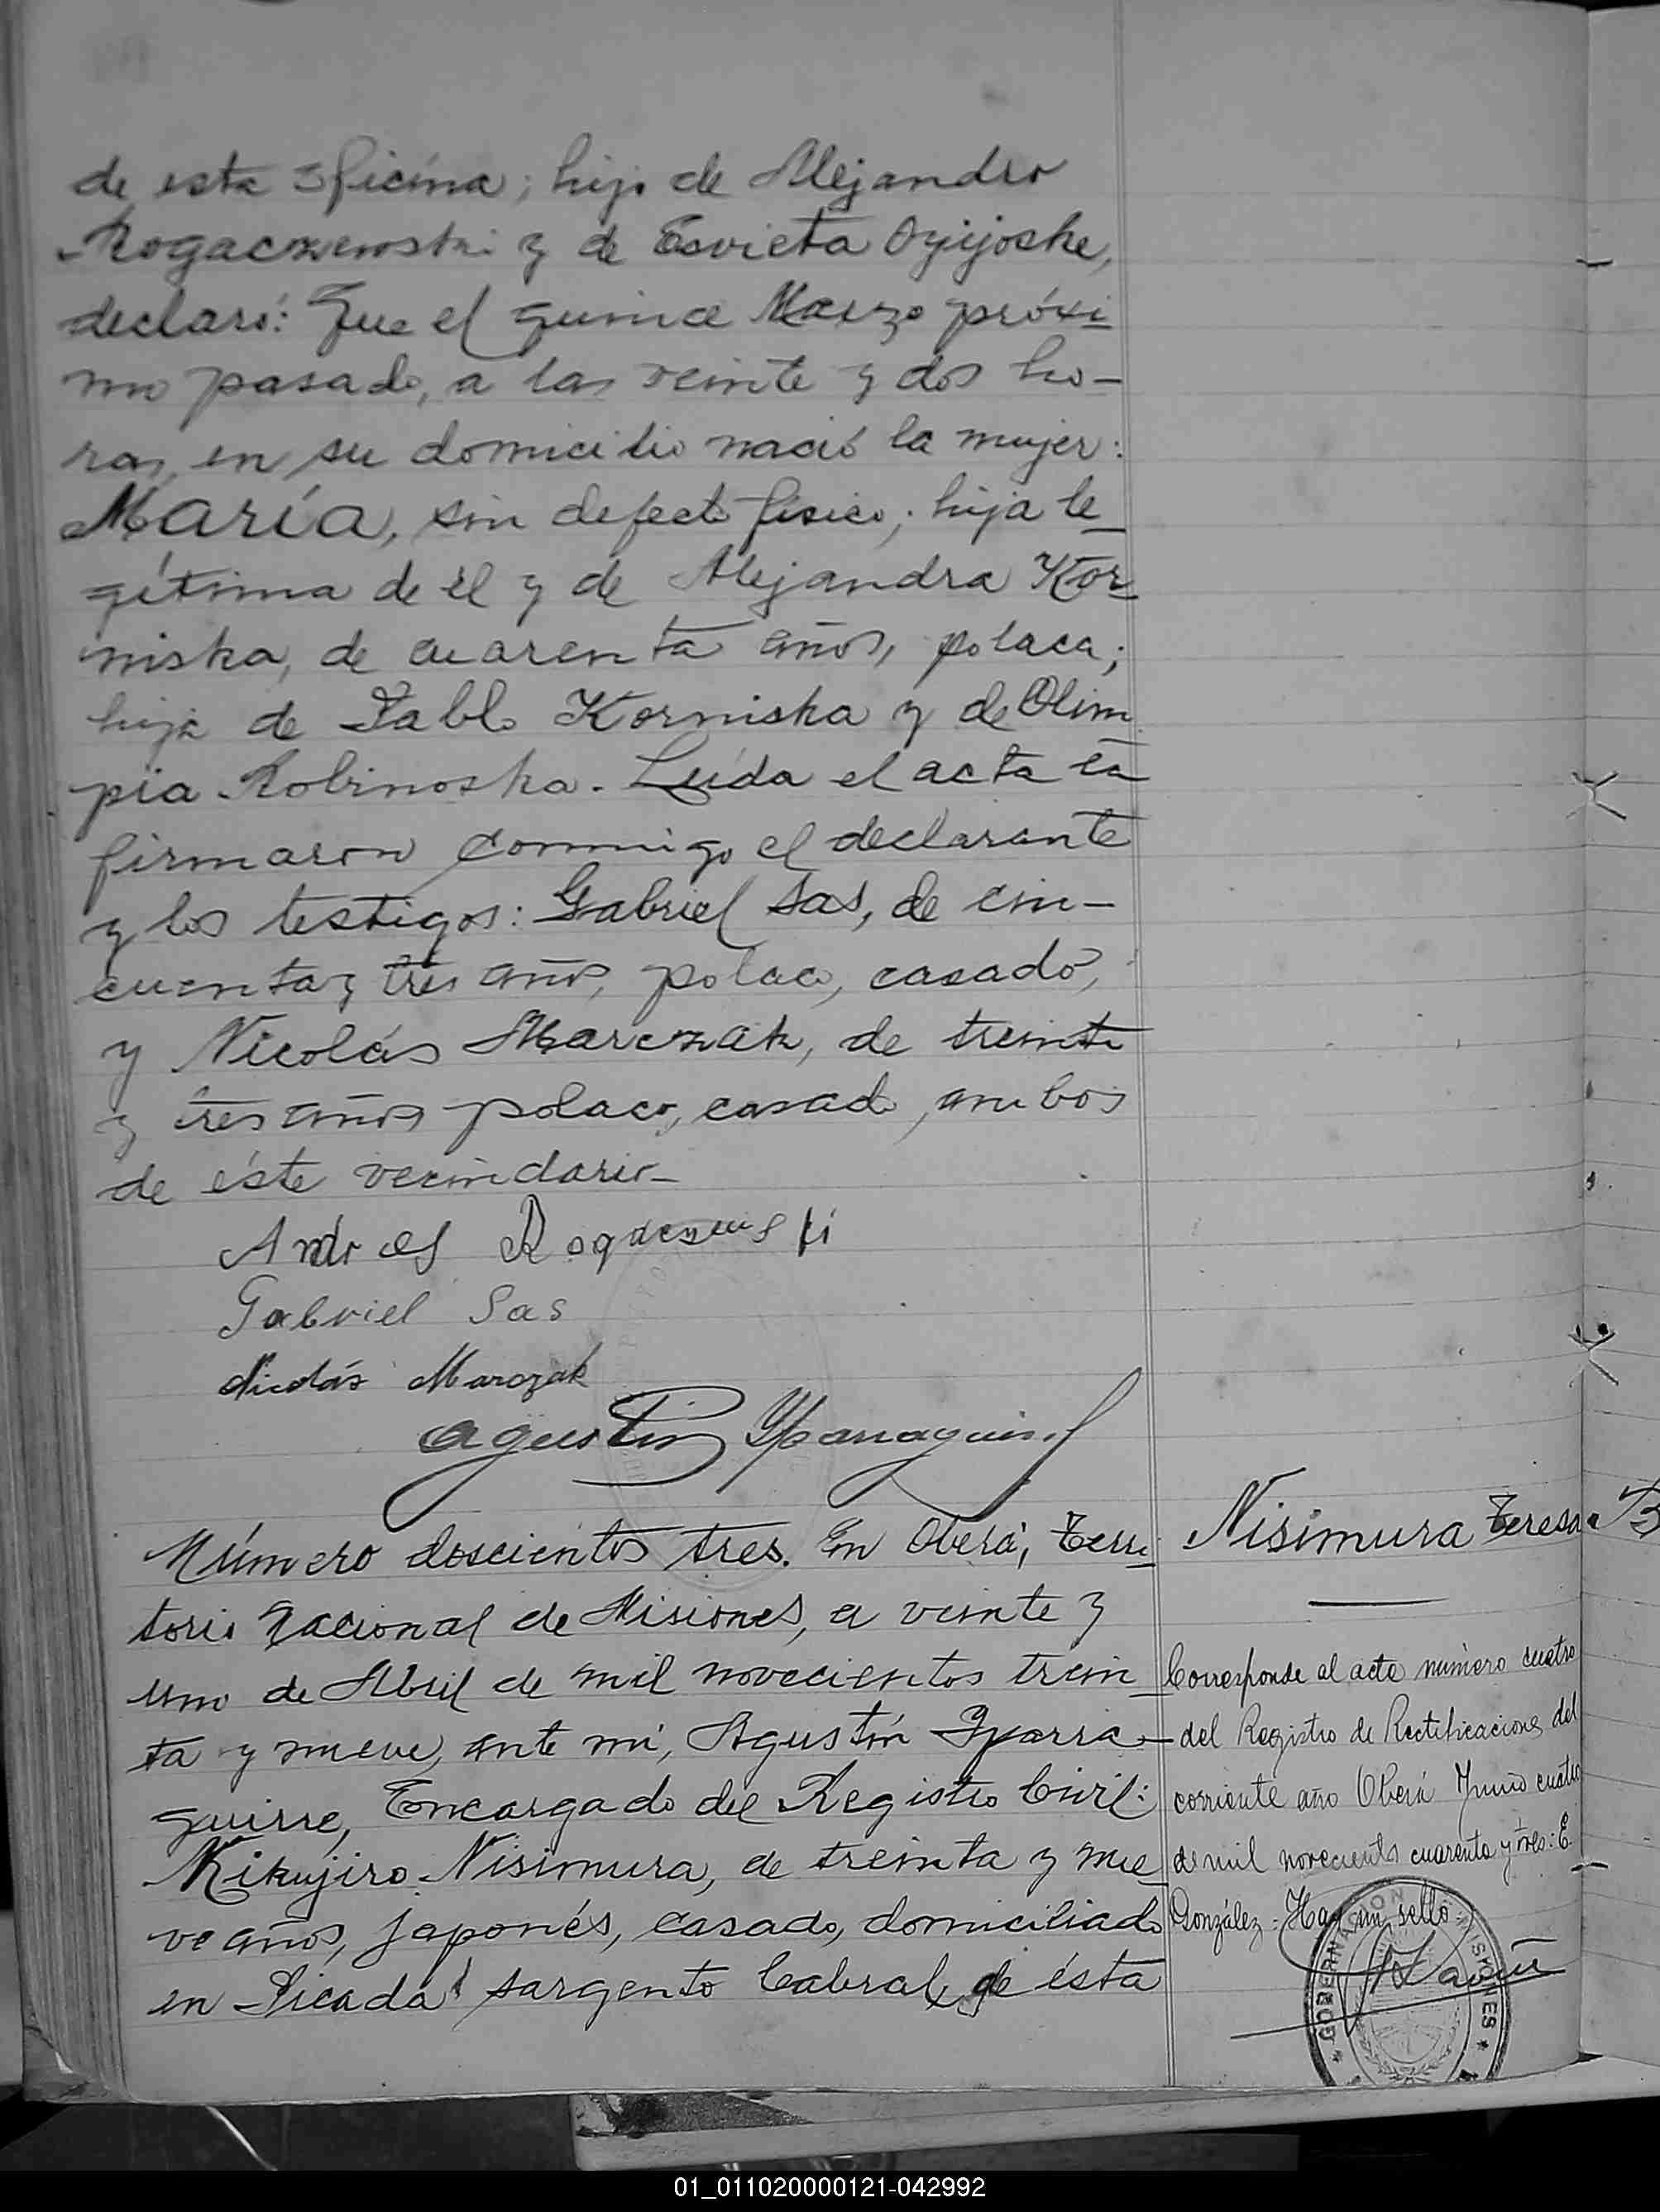 de esta oficina; hijo de Alejandro
Rogaczewski y de Esvieta Oyijoske,
declaró: Que el quince Marzo próxi
mo pasado, a las veinte y dos ho-
ras, en su domicilio nació la mujer:
María, sin defecto físico; hija le_
gítima de él y de Alejandra Kor
niska, de cuarenta años, polaca;
hija de Pablo Korniska y de Olim
pia Robinoska. Leída el acta la
firmaron conmigo el declarante
y los testigos: Gabriel Sas, de cin-
cuenta y tres años, polaco, casado,
y Nicolás Marczak, de treinta
y tres años polaco, casado, ambos
de éste vecindario_
Andres Rogaczewski
Gabriel Sas
Nicolás Marczak
Agustin Yparraguirre
Número doscientos tres. En Oberá, Terri
torio Nacional de Misiones, a veinte y
uno de Abril de mil novecientos trein
ta y nueve, ante mí, Agustín Yparra-
guirre, Encargado del Registro Civil:
Kikujiro Nisimura, de treinta y nue_
ve años, japonés, casado, domiciliado
en Picada Sargento Cabral de ésta
Nisimura Teresa B
Corresponde al acta número cuatro
del Registro de Rectificaciones del
corriente año Oberá Junio cuatro
de mil novecientos cuarenta y tres: E.
González - Hay un sello.
GOBERNACION MISIONES
01_011020000121-042992